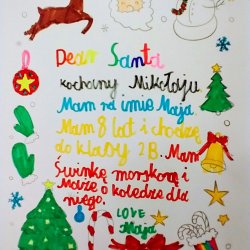 Dear Santa
kochany Mikołaju
Mam na imię Maja.
Mam 8 lat i chodzę
do klasy 2B. Mam
Świnkę morską i
Marzę o koledze dla
niego.
LOVE
Maja